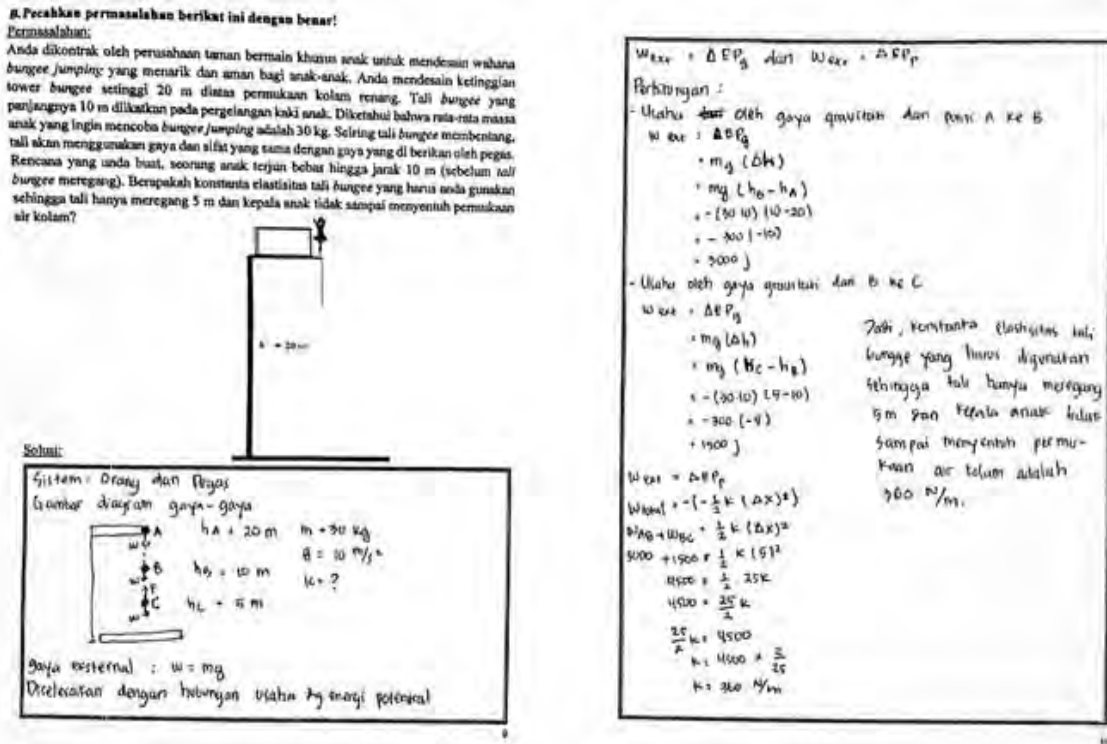 8. Pecahkan permasalahan berikut ini dengan benar!
Permasalahan:
Anda dikontrak oleh perusahaan taman bermain khusus anak untuk mendesain wahana
bungee jumping yang menarik dan aman bagi anak-anak. Anda mendesain ketinggian
tower bungee setinggi 20 m diatas permukaan kolam renang. Tali bungee yang
panjangnya 10 m diikatkan pada pergelangan kaki anak. Diketahui bahwa rata-rata massa
anak yang ingin mencoba bungee jumping adalah 30 kg. Seiring tali bungee membentang,
tali akan menggunakan gaya dan sifat yang sama dengan gaya yang di berikan oleh pegas.
Rencana yang anda buat, seorang anak terjun bebas hingga jarak 10 m (sebelum tali
bungee meregang). Berapakah konstanta elastisitas tali bungee yang harus anda gunakan
sehingga tali hanya meregang 5 m dan kepala anak tidak sampai menyentuh permukaan
air kolam?
= 20 m
Solusi:
Sistem: Orang dan Pegas
Gambar diagram gaya-gaya
A hA = 20 m m = 30 kg
w
g = 10 m/s²
B hB = 10 m
w k = ?
F
C hC = 5 m
w
gaya eksternal : w = mg
Diselesaikan dengan hubungan usaha dg energi potensial
9
W ext = ΔEPg dan W ext = ΔEPp
Perhitungan :
- Usaha oleh gaya gravitasi dari posisi A ke B
W ext = ΔEPg
= mg (Δh)
= mg (hB - hA)
= -(30·10) (10-20)
= -300 (-10)
= 3000 J
- Usaha oleh gaya gravitasi dari B ke C
W ext = ΔEPg
= mg (Δh)
= mg (hC - hB)
= -(30·10) (5-10)
= -300 (-5)
= 1500 J
W ext = ΔEPp
Wtotal = -(-½ k (Δx)²)
WAB + WBC = ½ k (Δx)²
3000 + 1500 = ½ k (5)²
4500 = ½ 25k
4500 = 25/2 k
25/2 k = 4500
k = 4500 × 2/25
k = 360 N/m
Jadi, konstanta elastisitas tali
bungge yang harus digunakan
sehingga tali hanya meregang
5m dan kepala anak tidak
sampai menyentuh permu-
kaan air kolam adalah
360 N/m.